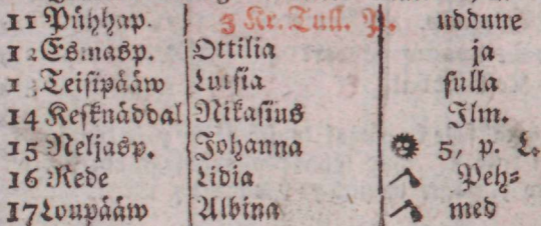 11 Pühhap. 3 Kr. Tull. P. uddune
12 Esmasp. Ottilia ja
13 Teisipääw Lutsia sulla
14 Kesknäddal Nikasius Ilm.
15 Neljasp. Johanna 5, p. L.
16 Rede Lidia Peh⸗
17 Loupääw Albina med